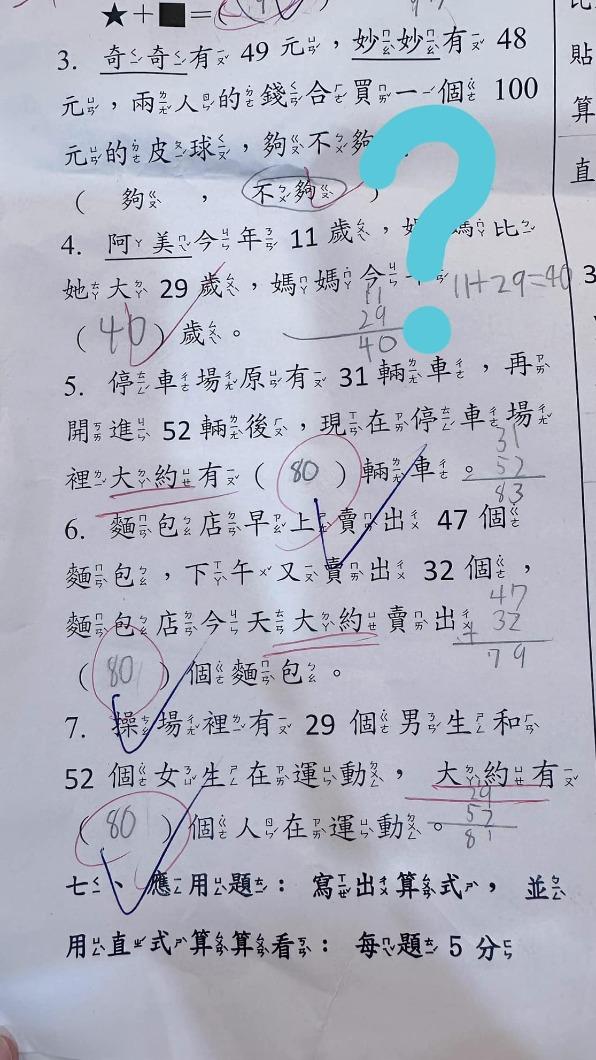 ★+■=(
3. 奇奇有 49 元,妙妙有 48
元,兩人的錢合買一個 100
元的皮球,夠不夠
( 夠 , 不夠 )
4. 阿美今年 11 歲,媽媽比
她大 29 歲,媽媽今 11+29=40
11
29
40
( 40 ) 歲。
5. 停車場原有 31 輛車,再
開進 52 輛後,現在停車場
裡大約有 ( 80 ) 輛車。
31
52
83
6. 麵包店早上賣出 47 個
麵包,下午又賣出 32 個,
麵包店今天大約賣出
47
+ 32
79
( 80 ) 個麵包。
7. 操場裡有 29 個男生和
52 個女生在運動, 大約有
( 80 ) 個人在運動。
29
52
81
七、應用題:寫出算式,並
用直式算算看:每題 5 分
貼
算
直
3